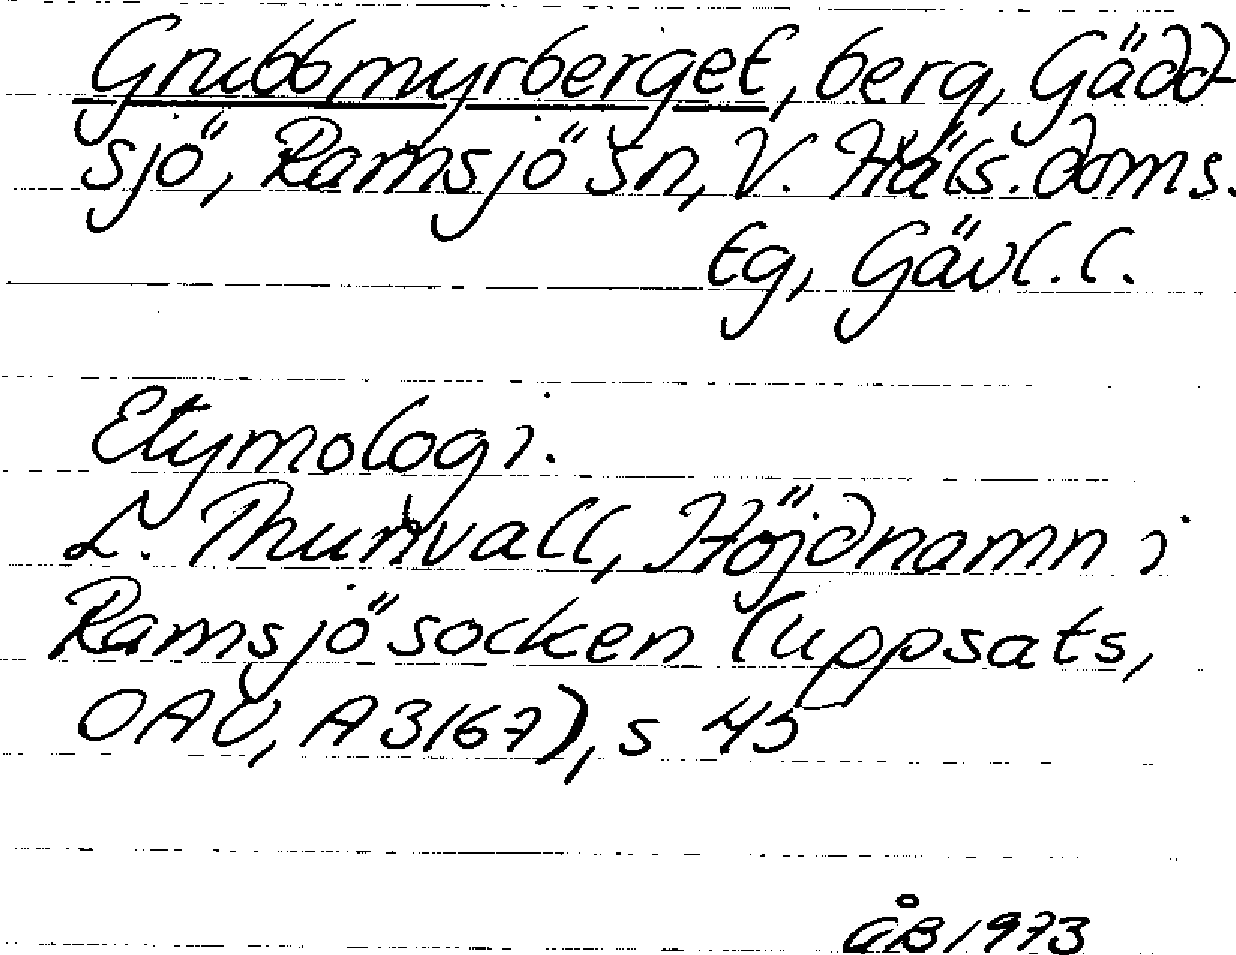 Grubbmyrberget, berg, Gädd-
sjö, Ramsjö sn, V. Häls. doms.
tg, Gävl. l.
Etymologi.
L. Thunvall, Höjdnamn i
Ramsjö socken (uppsats,
OAU, A3167), s 45
ÅB 1973